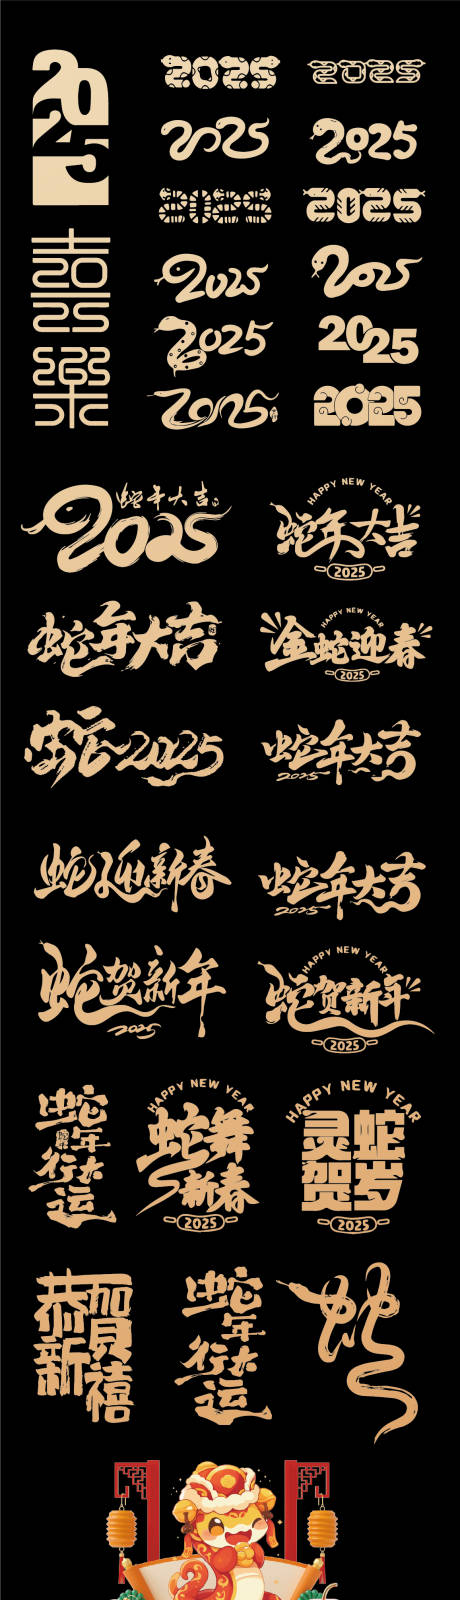 2025
2025
2025
2025
2025
2025
2025
2025
2025
2025
2025
2025
2025
蛇年大吉
2025
HAPPY NEW YEAR
蛇年大吉
2025
蛇年大吉
HAPPY NEW YEAR
金蛇迎春
2025
蛇2025
蛇年大吉
2025
蛇迎新春
蛇年大吉
2025
蛇贺新年
2025
HAPPY NEW YEAR
蛇贺新年
2025
蛇年
行大
运
HAPPY NEW YEAR
蛇舞
新春
2025
HAPPY NEW YEAR
灵蛇
贺岁
2025
恭贺
新禧
蛇年
行大
运
蛇